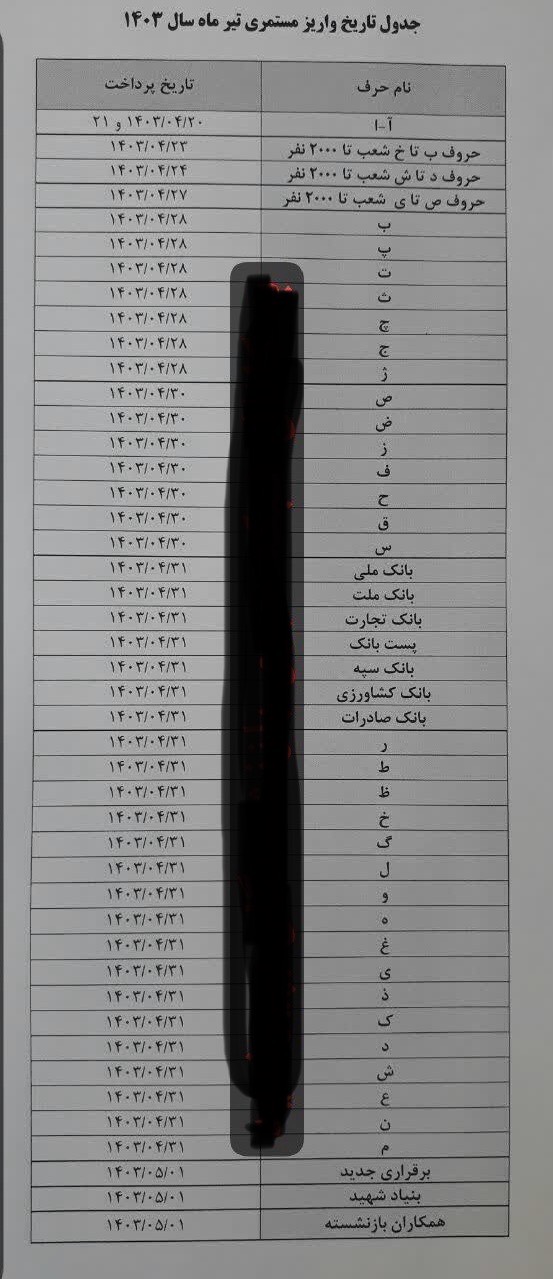 جدول تاریخ واریز مستمری تیر ماه سال ۱۴۰۳
نام حرف تاریخ پرداخت
آ-ا ۱۴۰۳/۰۴/۲۰ و ۲۱
حروف ب تا خ شعب تا ۲۰۰۰ نفر ۱۴۰۳/۰۴/۲۳
حروف د تا ش شعب تا ۲۰۰۰ نفر ۱۴۰۳/۰۴/۲۴
حروف ص تا ی شعب تا ۲۰۰۰ نفر ۱۴۰۳/۰۴/۲۷
ب ۱۴۰۳/۰۴/۲۸
پ ۱۴۰۳/۰۴/۲۸
ت ۱۴۰۳/۰۴/۲۸
ث ۱۴۰۳/۰۴/۲۸
چ ۱۴۰۳/۰۴/۲۸
ج ۱۴۰۳/۰۴/۲۸
ژ ۱۴۰۳/۰۴/۲۸
ص ۱۴۰۳/۰۴/۳۰
ض ۱۴۰۳/۰۴/۳۰
ز ۱۴۰۳/۰۴/۳۰
ف ۱۴۰۳/۰۴/۳۰
ح ۱۴۰۳/۰۴/۳۰
ق ۱۴۰۳/۰۴/۳۰
س ۱۴۰۳/۰۴/۳۰
بانک ملی ۱۴۰۳/۰۴/۳۱
بانک ملت ۱۴۰۳/۰۴/۳۱
بانک تجارت ۱۴۰۳/۰۴/۳۱
پست بانک ۱۴۰۳/۰۴/۳۱
بانک سپه ۱۴۰۳/۰۴/۳۱
بانک کشاورزی ۱۴۰۳/۰۴/۳۱
بانک صادرات ۱۴۰۳/۰۴/۳۱
ر ۱۴۰۳/۰۴/۳۱
ط ۱۴۰۳/۰۴/۳۱
ظ ۱۴۰۳/۰۴/۳۱
خ ۱۴۰۳/۰۴/۳۱
گ ۱۴۰۳/۰۴/۳۱
ل ۱۴۰۳/۰۴/۳۱
و ۱۴۰۳/۰۴/۳۱
ه ۱۴۰۳/۰۴/۳۱
غ ۱۴۰۳/۰۴/۳۱
ی ۱۴۰۳/۰۴/۳۱
ذ ۱۴۰۳/۰۴/۳۱
ک ۱۴۰۳/۰۴/۳۱
د ۱۴۰۳/۰۴/۳۱
ش ۱۴۰۳/۰۴/۳۱
ع ۱۴۰۳/۰۴/۳۱
ن ۱۴۰۳/۰۴/۳۱
م ۱۴۰۳/۰۴/۳۱
برقراری جدید ۱۴۰۳/۰۵/۰۱
بنیاد شهید ۱۴۰۳/۰۵/۰۱
همکاران بازنشسته ۱۴۰۳/۰۵/۰۱